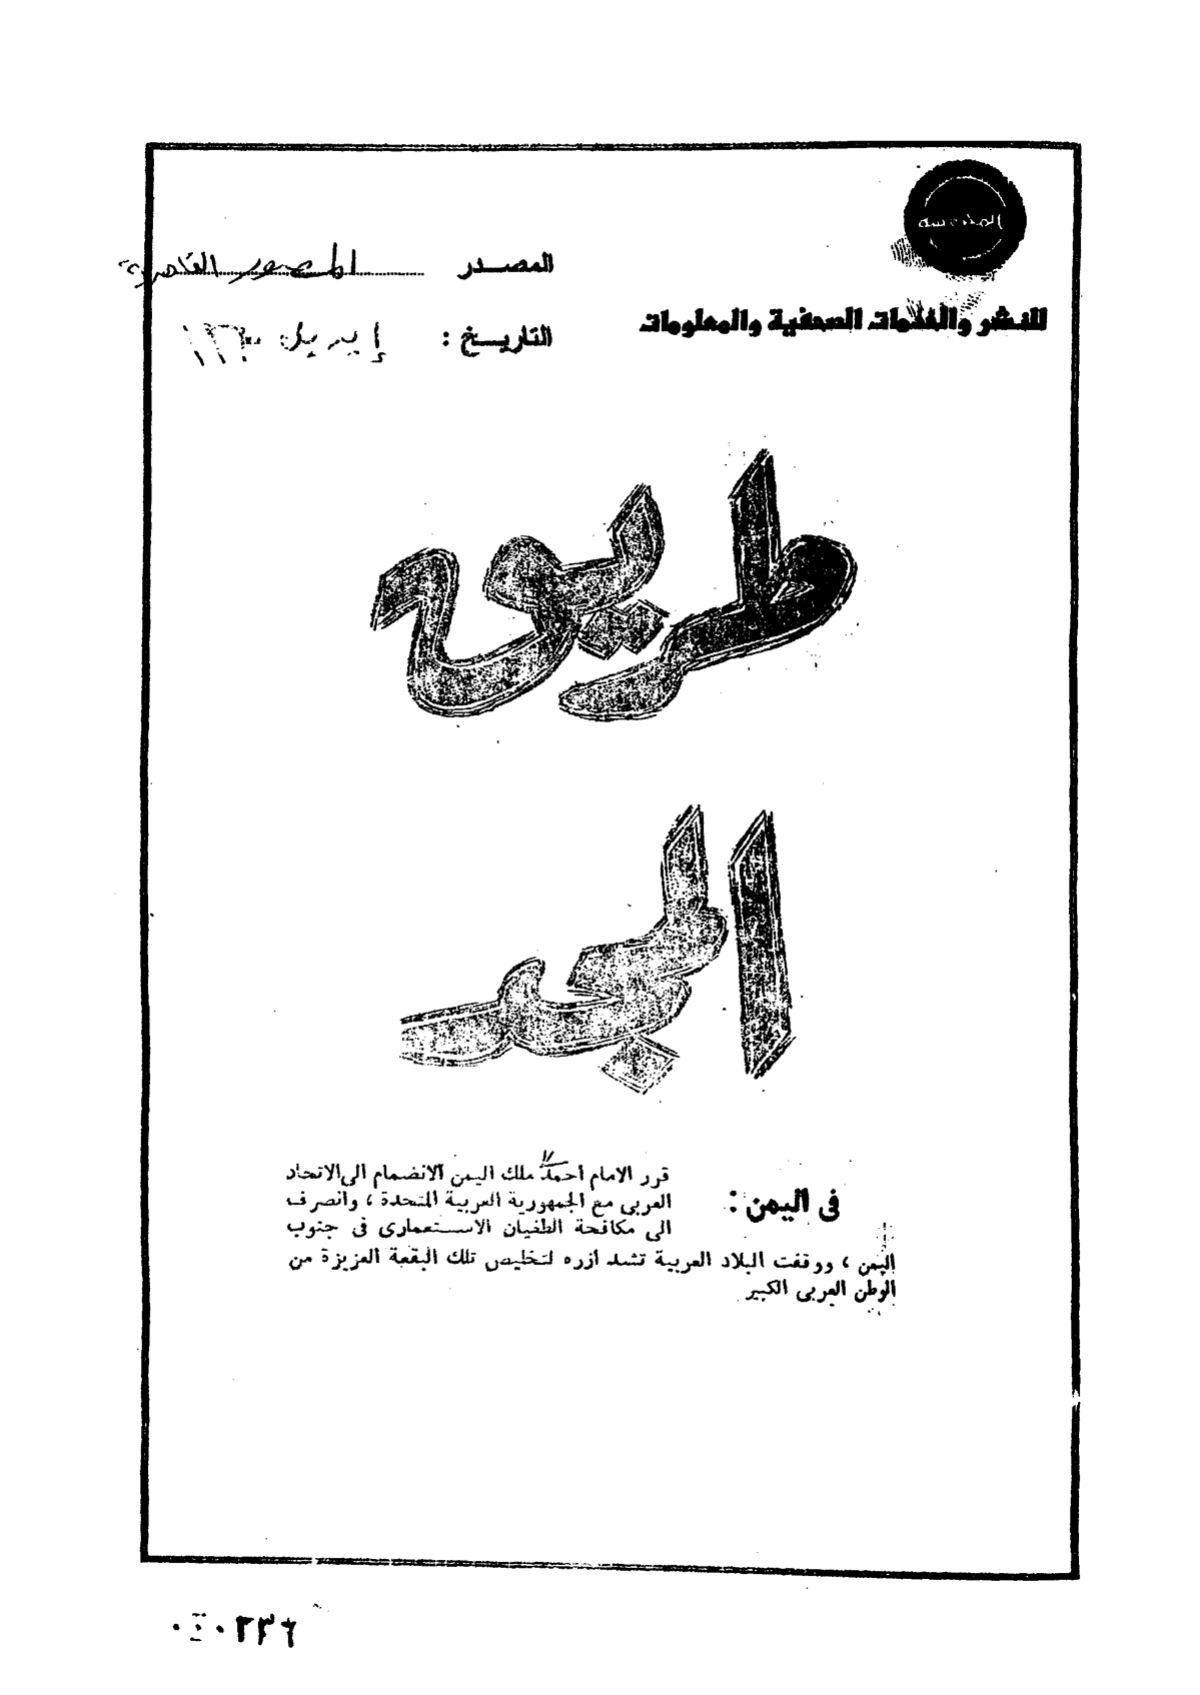 المصدر المصور القاهرية
للنشر والخدمات الصحفية والمعلومات
التاريخ : إبريل
طريق
المجد
فى اليمن :
قرر الامام أحمد ملك اليمن الانضمام الى الاتحاد
العربى مع الجمهورية العربية المتحدة ، وانصرف
الى مكافحة الطغيان الاستعمارى فى جنوب
اليمن ، ووقفت البلاد العربية تشد أزره لتخليص تلك البقعة العزيزة من
الوطن العربى الكبير